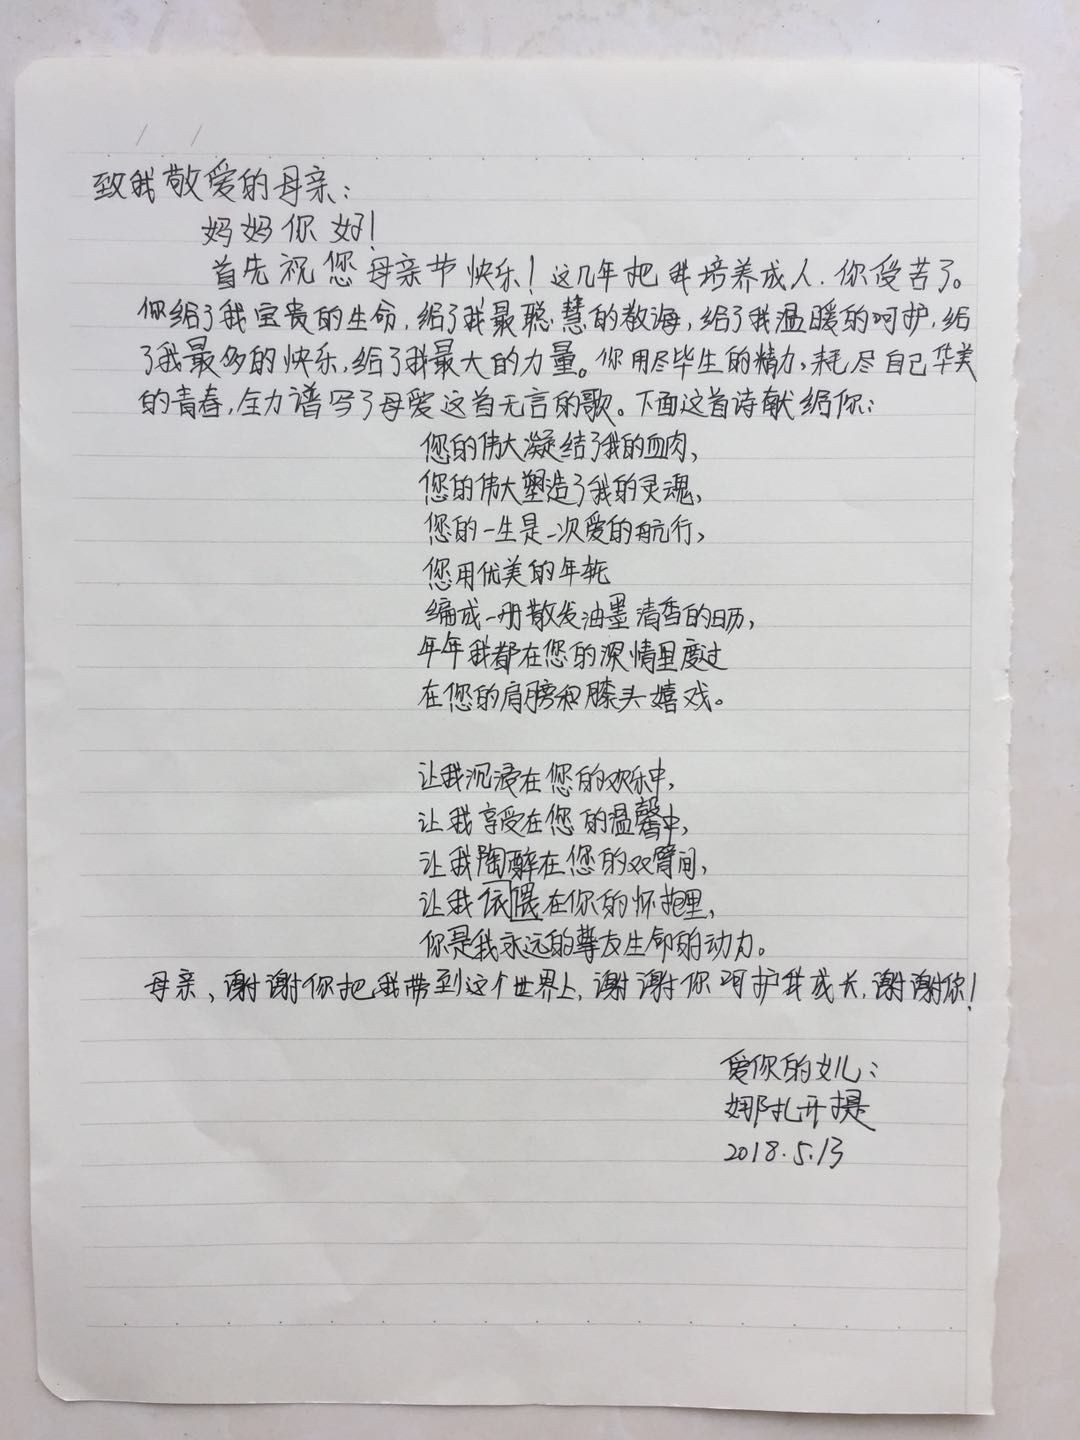 致我敬爱的母亲：
妈妈你好！
首先祝您母亲节快乐！这几年把我培养成人，你受苦了。
你给了我宝贵的生命，给了我最聪慧的教海，给了我温暖的呵护，给
了我最多的快乐，给了我最大的力量。你用尽毕生的精力，耗尽自己华美
的青春，全力谱写了母爱这首无言的歌。下面这首诗献给你：
您的伟大凝结了我的血肉，
您的伟大塑造了我的灵魂，
您的一生是一次爱的航行，
您用优美的年轮
编成一册散发油墨清香的日历，
年年我都在您的深情里度过
在您的肩膀和膝头嬉戏。
让我沉浸在您的欢乐中，
让我享受在您的温馨中，
让我陶醉在您的双臂间，
让我依偎在你的怀抱里，
你是我永远的挚友生命的动力。
母亲、谢谢你把我带到这个世界上，谢谢你呵护我成长，谢谢你！
爱你的女儿：
娜扎开提
2018.5.13